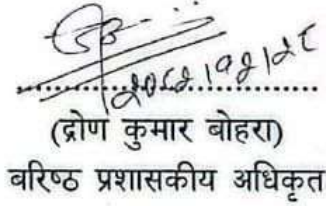 २०८२।१२।२८
(द्रोण कुमार बोहरा)
बरिष्ठ प्रशासकीय अधिकृत